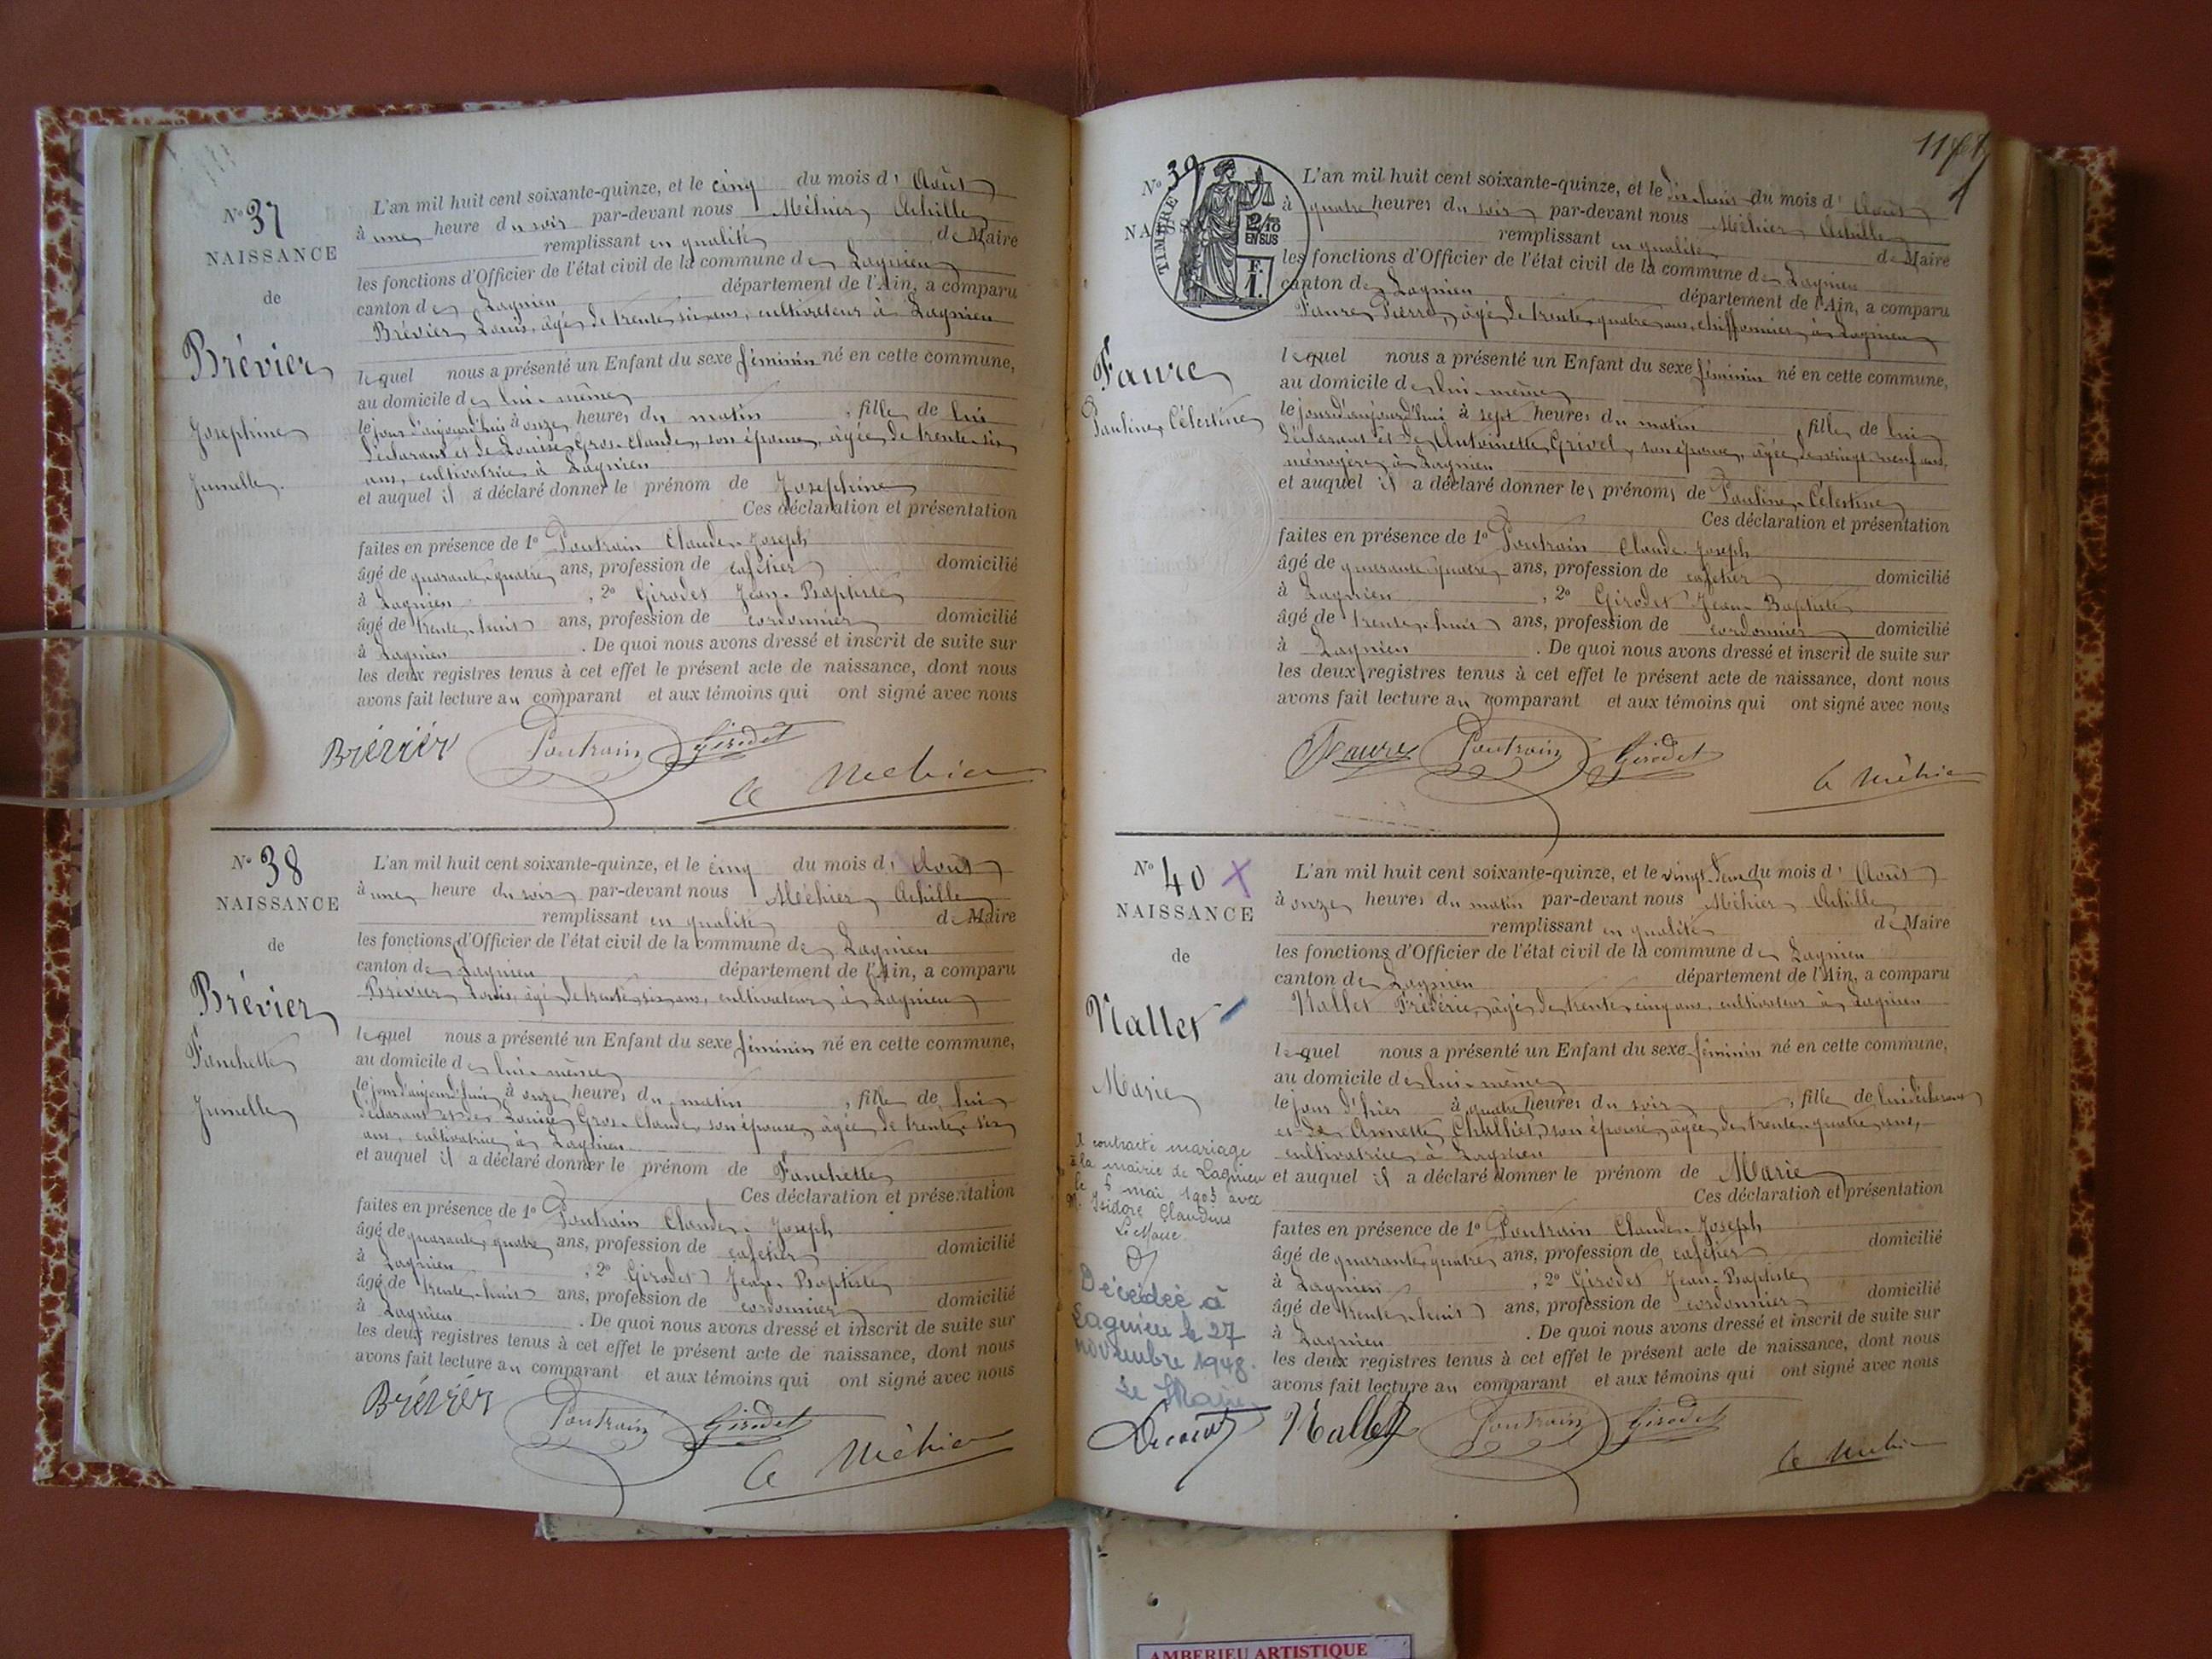 N° 37
NAISSANCE
de
Brévier
Josephine
Jumelle.
L'an mil huit cent soixante-quinze, et le cinq du mois d' Août
à une heure du soir par-devant nous Méhier Achille
remplissant en qualité de Maire
les fonctions d'Officier de l'état civil de la commune de Lagnieu
canton de Lagnieu département de l'Ain, a comparu
Brévier Louis, âgé de trente six ans, cultivateur à Lagnieu
lequel nous a présenté un Enfant du sexe féminin né en cette commune,
au domicile de lui-même
le jour d'aujourd'hui à onze heures du matin , fille de lui
déclarant et de Louise Gros-Claude, son épouse, âgée de trente-six
ans, cultivatrice à Lagnieu
et auquel il a déclaré donner le prénom de Josephine
Ces déclaration et présentation
faites en présence de 1° Poutrain Claude-Joseph
âgé de quarante-quatre ans, profession de cafetier domicilié
à Lagnieu , 2° Girodet Jean-Baptiste
âgé de trente-huit ans, profession de cordonnier domicilié
à Lagnieu . De quoi nous avons dressé et inscrit de suite sur
les deux registres tenus à cet effet le présent acte de naissance, dont nous
avons fait lecture au comparant et aux témoins qui ont signé avec nous
Brévier Poutrain Girodet
A Méhier
N° 38
NAISSANCE
de
Brévier
Fanchette
Jumelle
L'an mil huit cent soixante-quinze, et le cinq du mois d' Août
à une heure du soir par-devant nous Méhier Achille
remplissant en qualité de Maire
les fonctions d'Officier de l'état civil de la commune de Lagnieu
canton de Lagnieu département de l'Ain, a comparu
Brévier Louis, âgé de trente six ans, cultivateur à Lagnieu
lequel nous a présenté un Enfant du sexe féminin né en cette commune,
au domicile de lui-même
le jour d'aujourd'hui à onze heures du matin , fille de lui
déclarant et de Louise Gros-Claude, son épouse, âgée de trente-six
ans, cultivatrice à Lagnieu
et auquel il a déclaré donner le prénom de Fanchette
Ces déclaration et présentation
faites en présence de 1° Poutrain Claude-Joseph
âgé de quarante-quatre ans, profession de cafetier domicilié
à Lagnieu , 2° Girodet Jean-Baptiste
âgé de trente-huit ans, profession de cordonnier domicilié
à Lagnieu . De quoi nous avons dressé et inscrit de suite sur
les deux registres tenus à cet effet le présent acte de naissance, dont nous
avons fait lecture au comparant et aux témoins qui ont signé avec nous
Brévier Poutrain Girodet
A Méhier
N° 39
NAISS
TIMBRE
2/10
EN SUS
F.
1.
Faure
Pauline, Célestine
L'an mil huit cent soixante-quinze, et le dix-huit du mois d' Août
à quatre heures du soir par-devant nous Méhier Achille
remplissant en qualité de Maire
les fonctions d'Officier de l'état civil de la commune de Lagnieu
canton de Lagnieu département de l'Ain, a comparu
Faure Pierre, âgé de trente-quatre ans, chiffonnier à Lagnieu
lequel nous a présenté un Enfant du sexe féminin né en cette commune,
au domicile de lui-même
le jour d'aujourd'hui à sept heures du matin , fille de lui
déclarant et de Antoinette Grivel, son épouse, âgée de vingt-neuf ans,
ménagère à Lagnieu
et auquel il a déclaré donner les prénoms de Pauline-Célestine
Ces déclaration et présentation
faites en présence de 1° Poutrain Claude-Joseph
âgé de quarante-quatre ans, profession de cafetier domicilié
à Lagnieu , 2° Girodet Jean-Baptiste
âgé de trente-huit ans, profession de cordonnier domicilié
à Lagnieu . De quoi nous avons dressé et inscrit de suite sur
les deux registres tenus à cet effet le présent acte de naissance, dont nous
avons fait lecture au comparant et aux témoins qui ont signé avec nous
Faure Poutrain Girodet
A Méhier
N° 40 X
NAISSANCE
de
Nallet
Marie
A contracté mariage
à la mairie de Lagnieu
le 6 mai 1903 avec
M. Isidore Claudius
Décédée à
Lagnieu le 27
novembre 1948.
Le Maire
L'an mil huit cent soixante-quinze, et le vingt-deux du mois d' Août
à onze heures du matin par-devant nous Méhier Achille
remplissant en qualité de Maire
les fonctions d'Officier de l'état civil de la commune de Lagnieu
canton de Lagnieu département de l'Ain, a comparu
Nallet Frédéric, âgé de trente-cinq ans, cultivateur à Lagnieu
lequel nous a présenté un Enfant du sexe féminin né en cette commune,
au domicile de lui-même
le jour d'hier à quatre heures du soir , fille de lui déclarant
et de Annette Chulliet, son épouse, âgée de trente-quatre ans,
cultivatrice à Lagnieu
et auquel il a déclaré donner le prénom de Marie
Ces déclaration et présentation
faites en présence de 1° Poutrain Claude-Joseph
âgé de quarante-quatre ans, profession de cafetier domicilié
à Lagnieu , 2° Girodet Jean-Baptiste
âgé de trente-huit ans, profession de cordonnier domicilié
à Lagnieu . De quoi nous avons dressé et inscrit de suite sur
les deux registres tenus à cet effet le présent acte de naissance, dont nous
avons fait lecture au comparant et aux témoins qui ont signé avec nous
Nallet Poutrain Girodet
A Méhier
AMBERIEU ARTISTIQUE